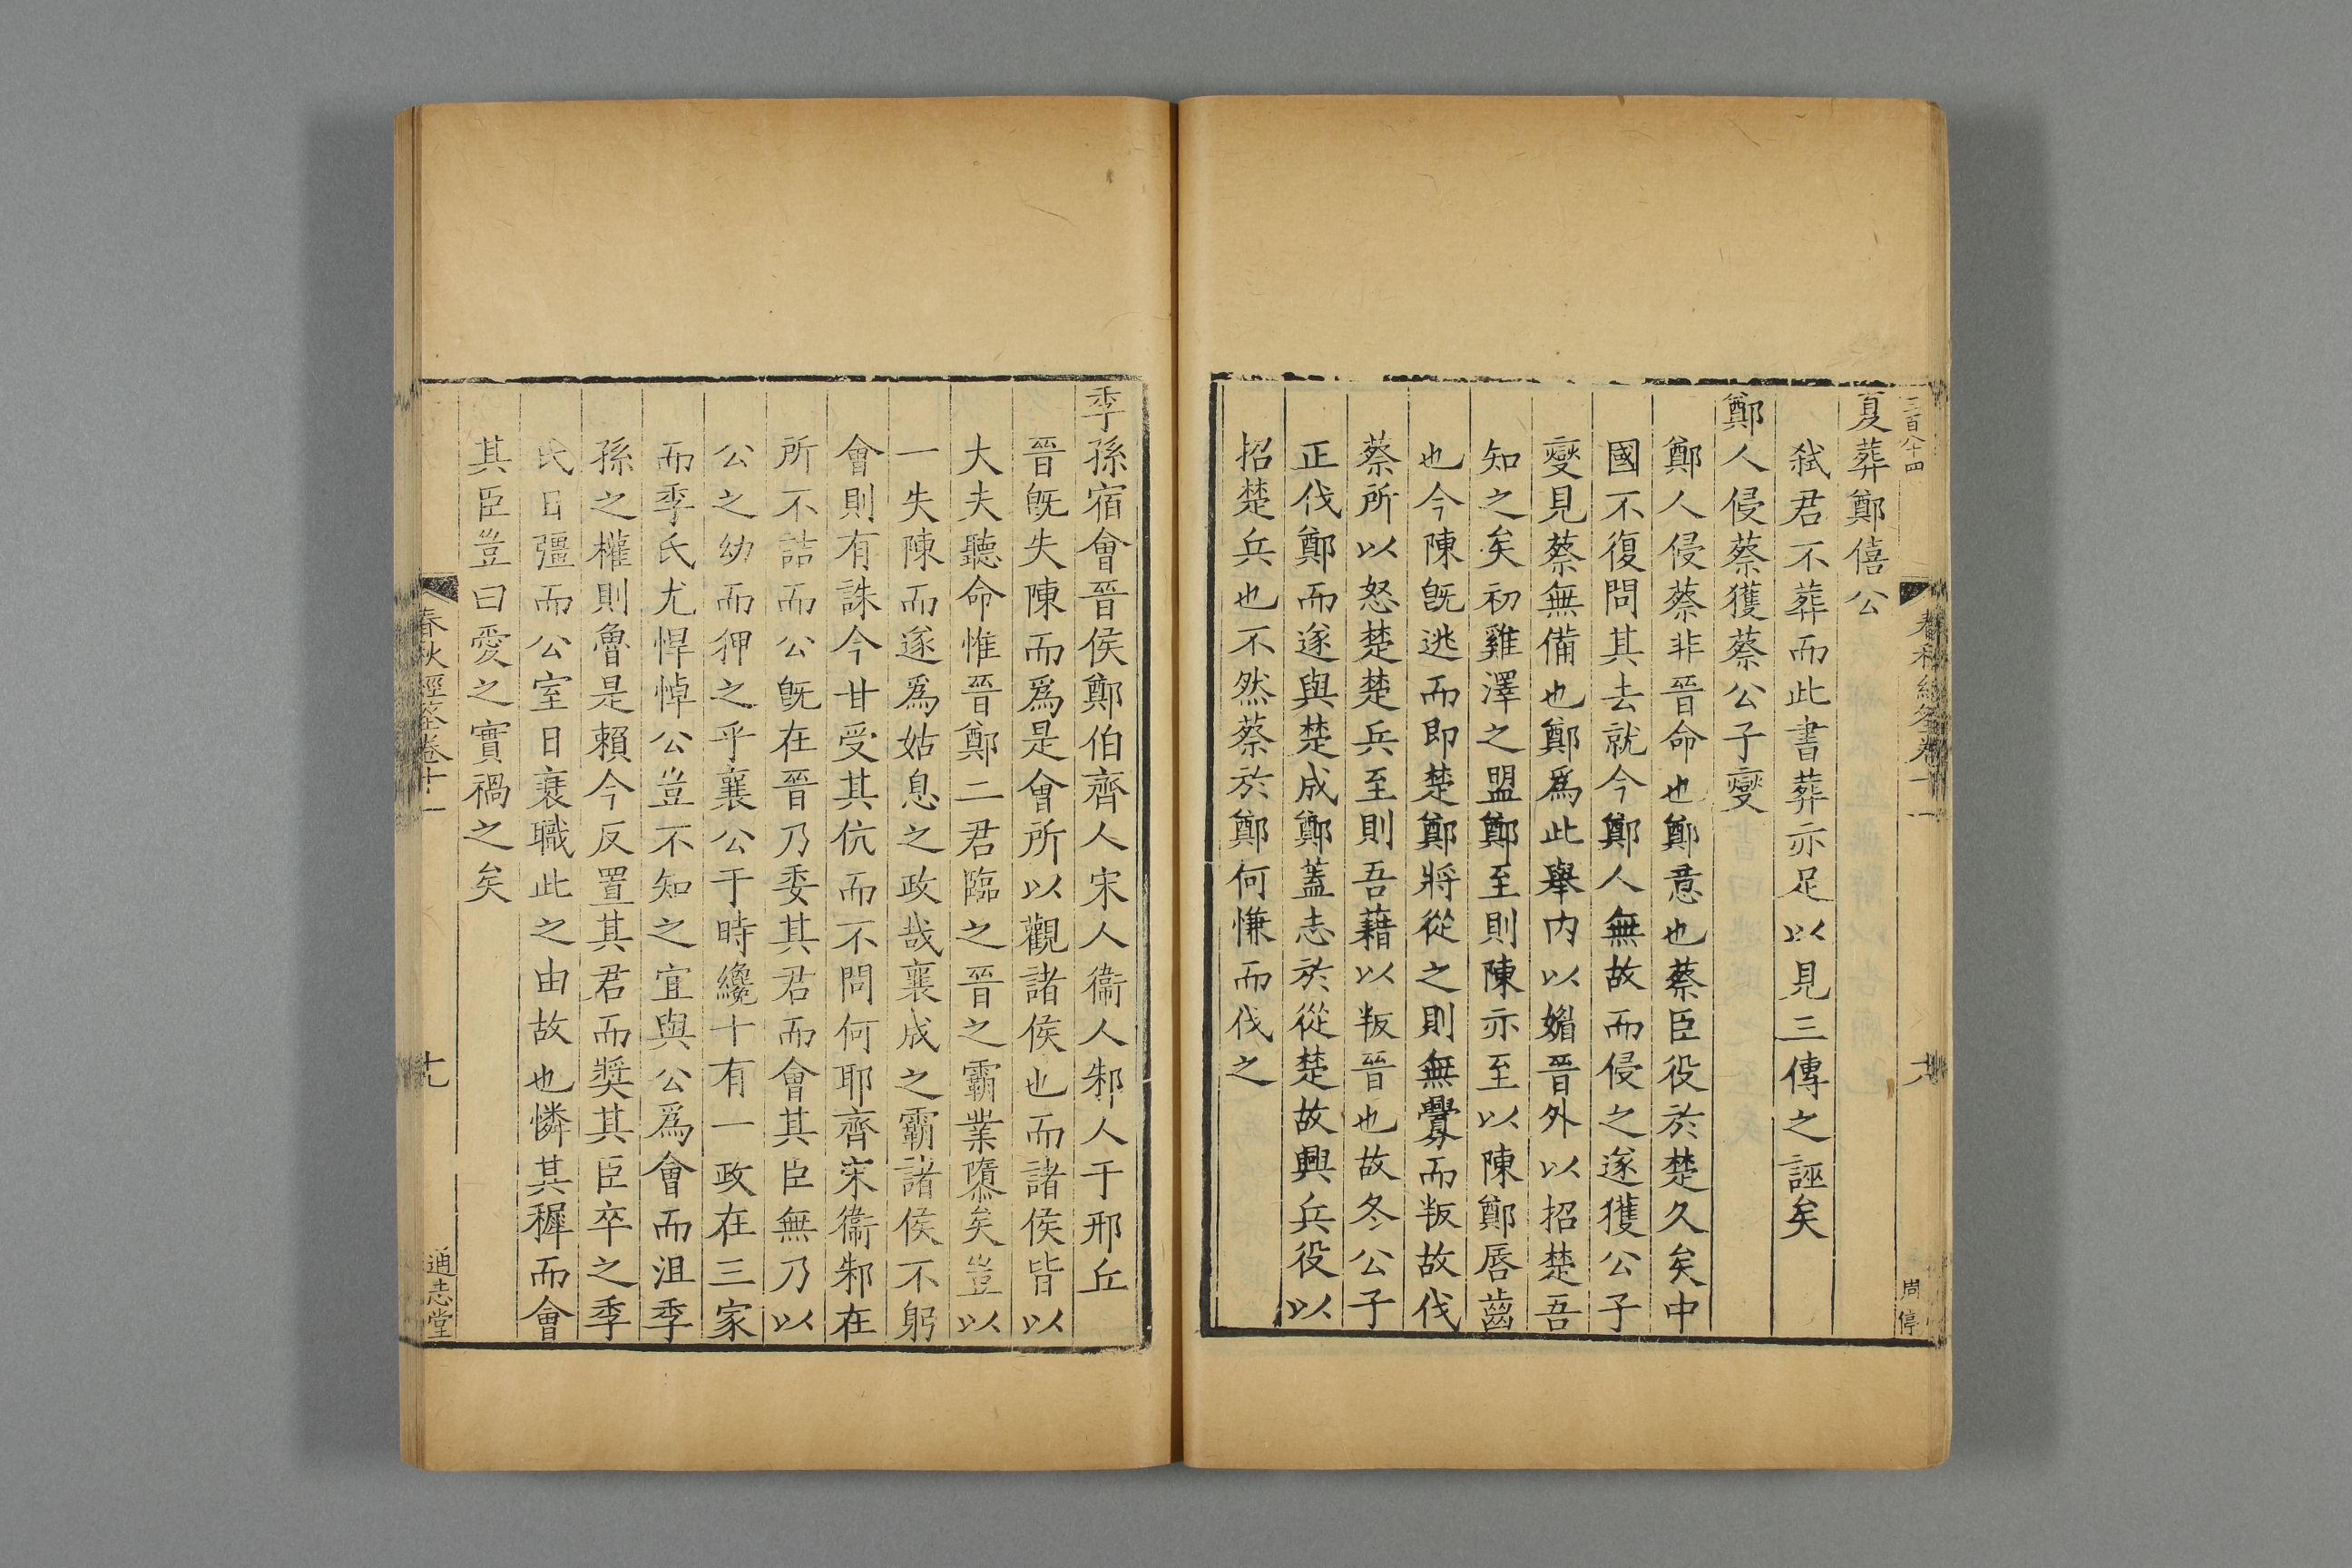 三百八十四
春秋經筌卷十一
周停
夏葬鄭僖公
弑君不葬而此書葬亦足以見三傳之誣矣
鄭人侵蔡獲蔡公子燮
鄭人侵蔡非晉命也鄭意也蔡臣役於楚久矣中
國不復問其去就今鄭人無故而侵之遂獲公子
燮見蔡無備也鄭爲此舉内以媚晉外以招楚吾
知之矣初雞澤之盟鄭至則陳亦至以陳鄭唇齒
也今陳旣逃而即楚鄭將從之則無釁而叛故伐
蔡所以怒楚楚兵至則吾藉以叛晉也故冬公子
正伐鄭而遂與楚成鄭蓋志於從楚故興兵役以
招楚兵也不然蔡於鄭何慊而伐之
季孫宿會晉侯鄭伯齊人宋人衞人邾人于邢丘
晉旣失陳而爲是會所以觀諸侯也而諸侯皆以
大夫聽命惟晉鄭二君臨之晉之霸業隳矣豈以
一失陳而遂爲姑息之政哉襄成之霸諸侯不躬
會則有誅今甘受其伉而不問何耶齊宋衞邾在
所不詰而公旣在晉乃委其君而會其臣無乃以
公之幼而狎之乎襄公于時纔十有一政在三家
而季氏尤悍悼公豈不知之宜與公爲會而沮季
孫之權則魯是賴今反置其君而奬其臣卒之季
氏日彊而公室日衰職此之由故也憐其穉而會
其臣豈曰愛之實禍之矣
春秋經筌卷十一
十九
通志堂